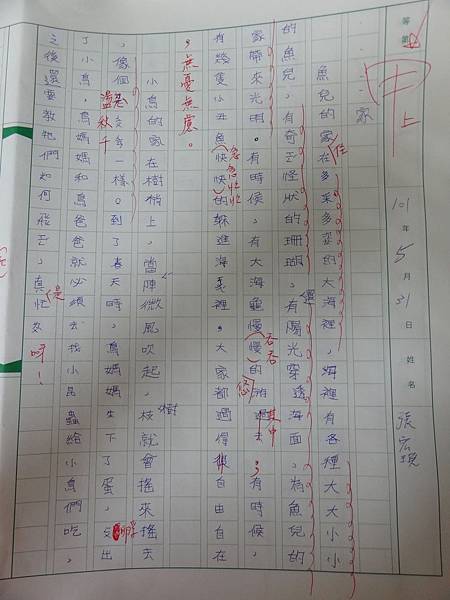 等第
中上
101年5月31日 姓名 張宏
家
魚兒的家住在多采多姿的大海裡,海裡有各種大大小小
的魚兒,有奇形怪狀的珊瑚,還有陽光穿透海面,將魚兒的
家帶來光明。有時候,有大海龜慢慢吞吞的游過去;有時候,
有幾隻小丑魚急急忙忙快快的躲進海葵裡。大家都過得很自由自在
,無憂無慮。
小鳥的家在樹梢上,當陣微風吹起,樹枝就會搖來搖去
,像個盪秋千一樣。到了春天時,鳥媽媽生下了蛋,孵出
了小鳥,鳥媽媽和鳥爸爸就必須去找小昆蟲給小鳥們吃,
之後還要教牠們如何飛,真是忙呀!